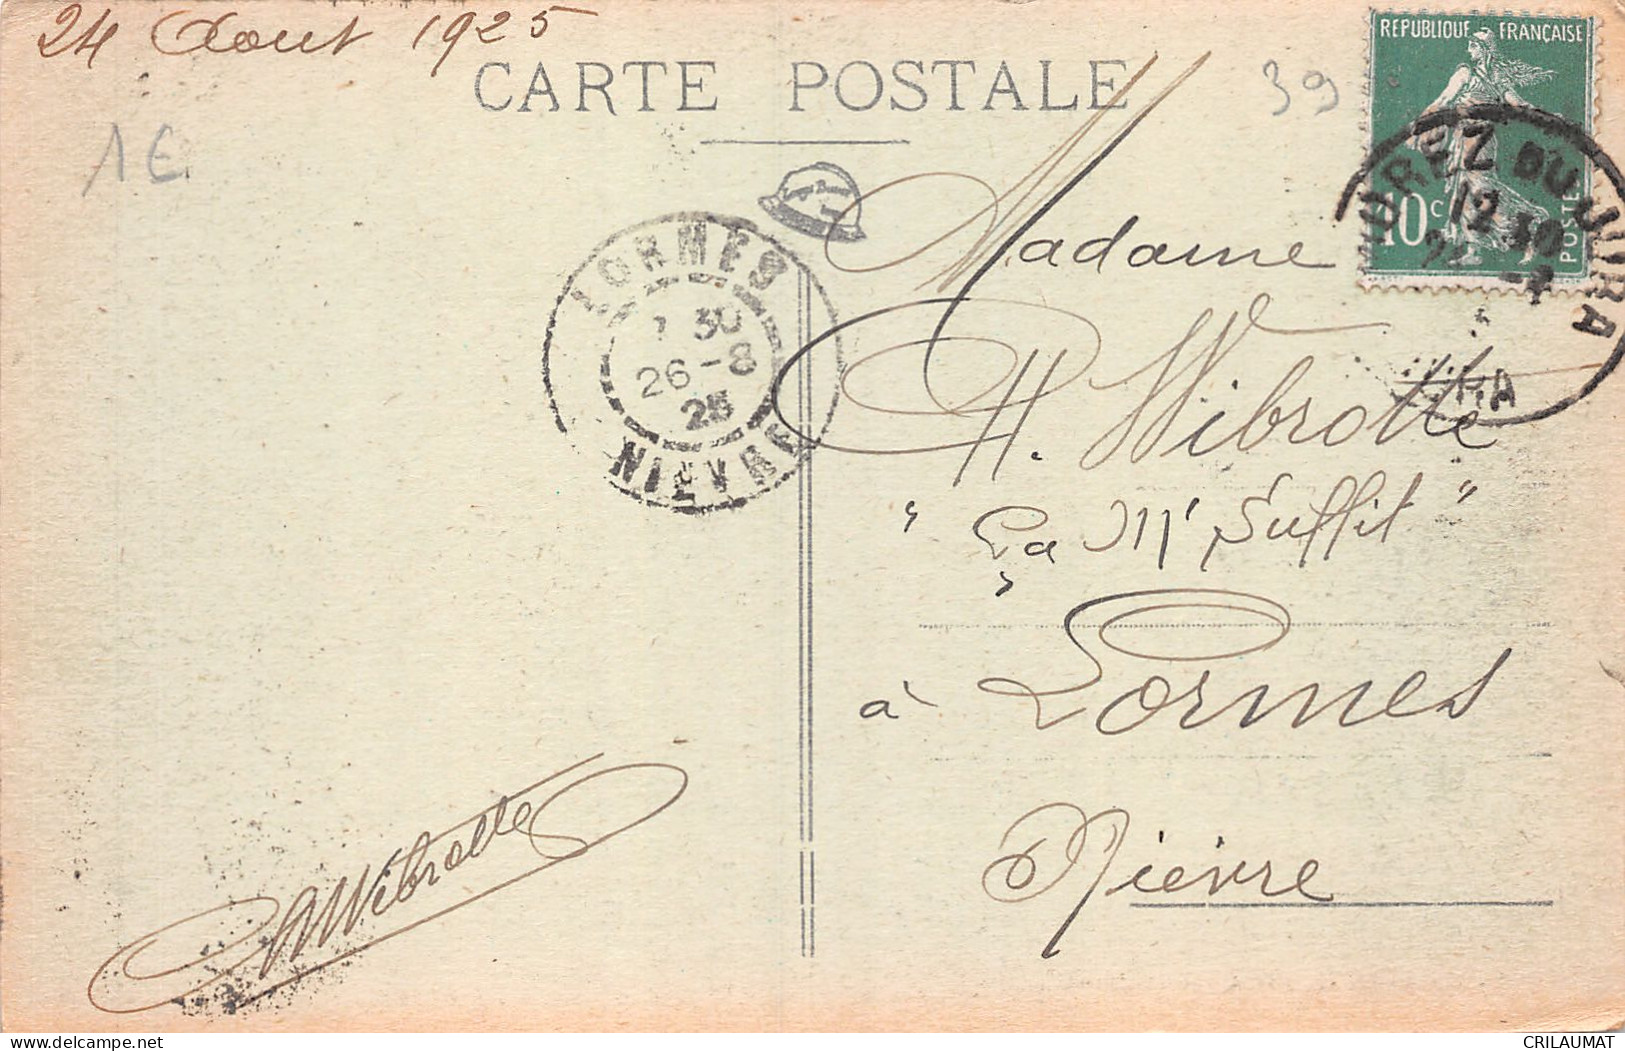 24 Aout 1925
CARTE POSTALE
39
1€
REPUBLIQUE FRANÇAISE
10c
POSTES
MOREZ DU JURA
12 30
24 -8
LORMES
7 30
26-8
25
NIEVRE
Madame
H. Wibrotte
"La M' Suffit"
à Lormes
Nièvre
Wibrotte
CRILAUMAT